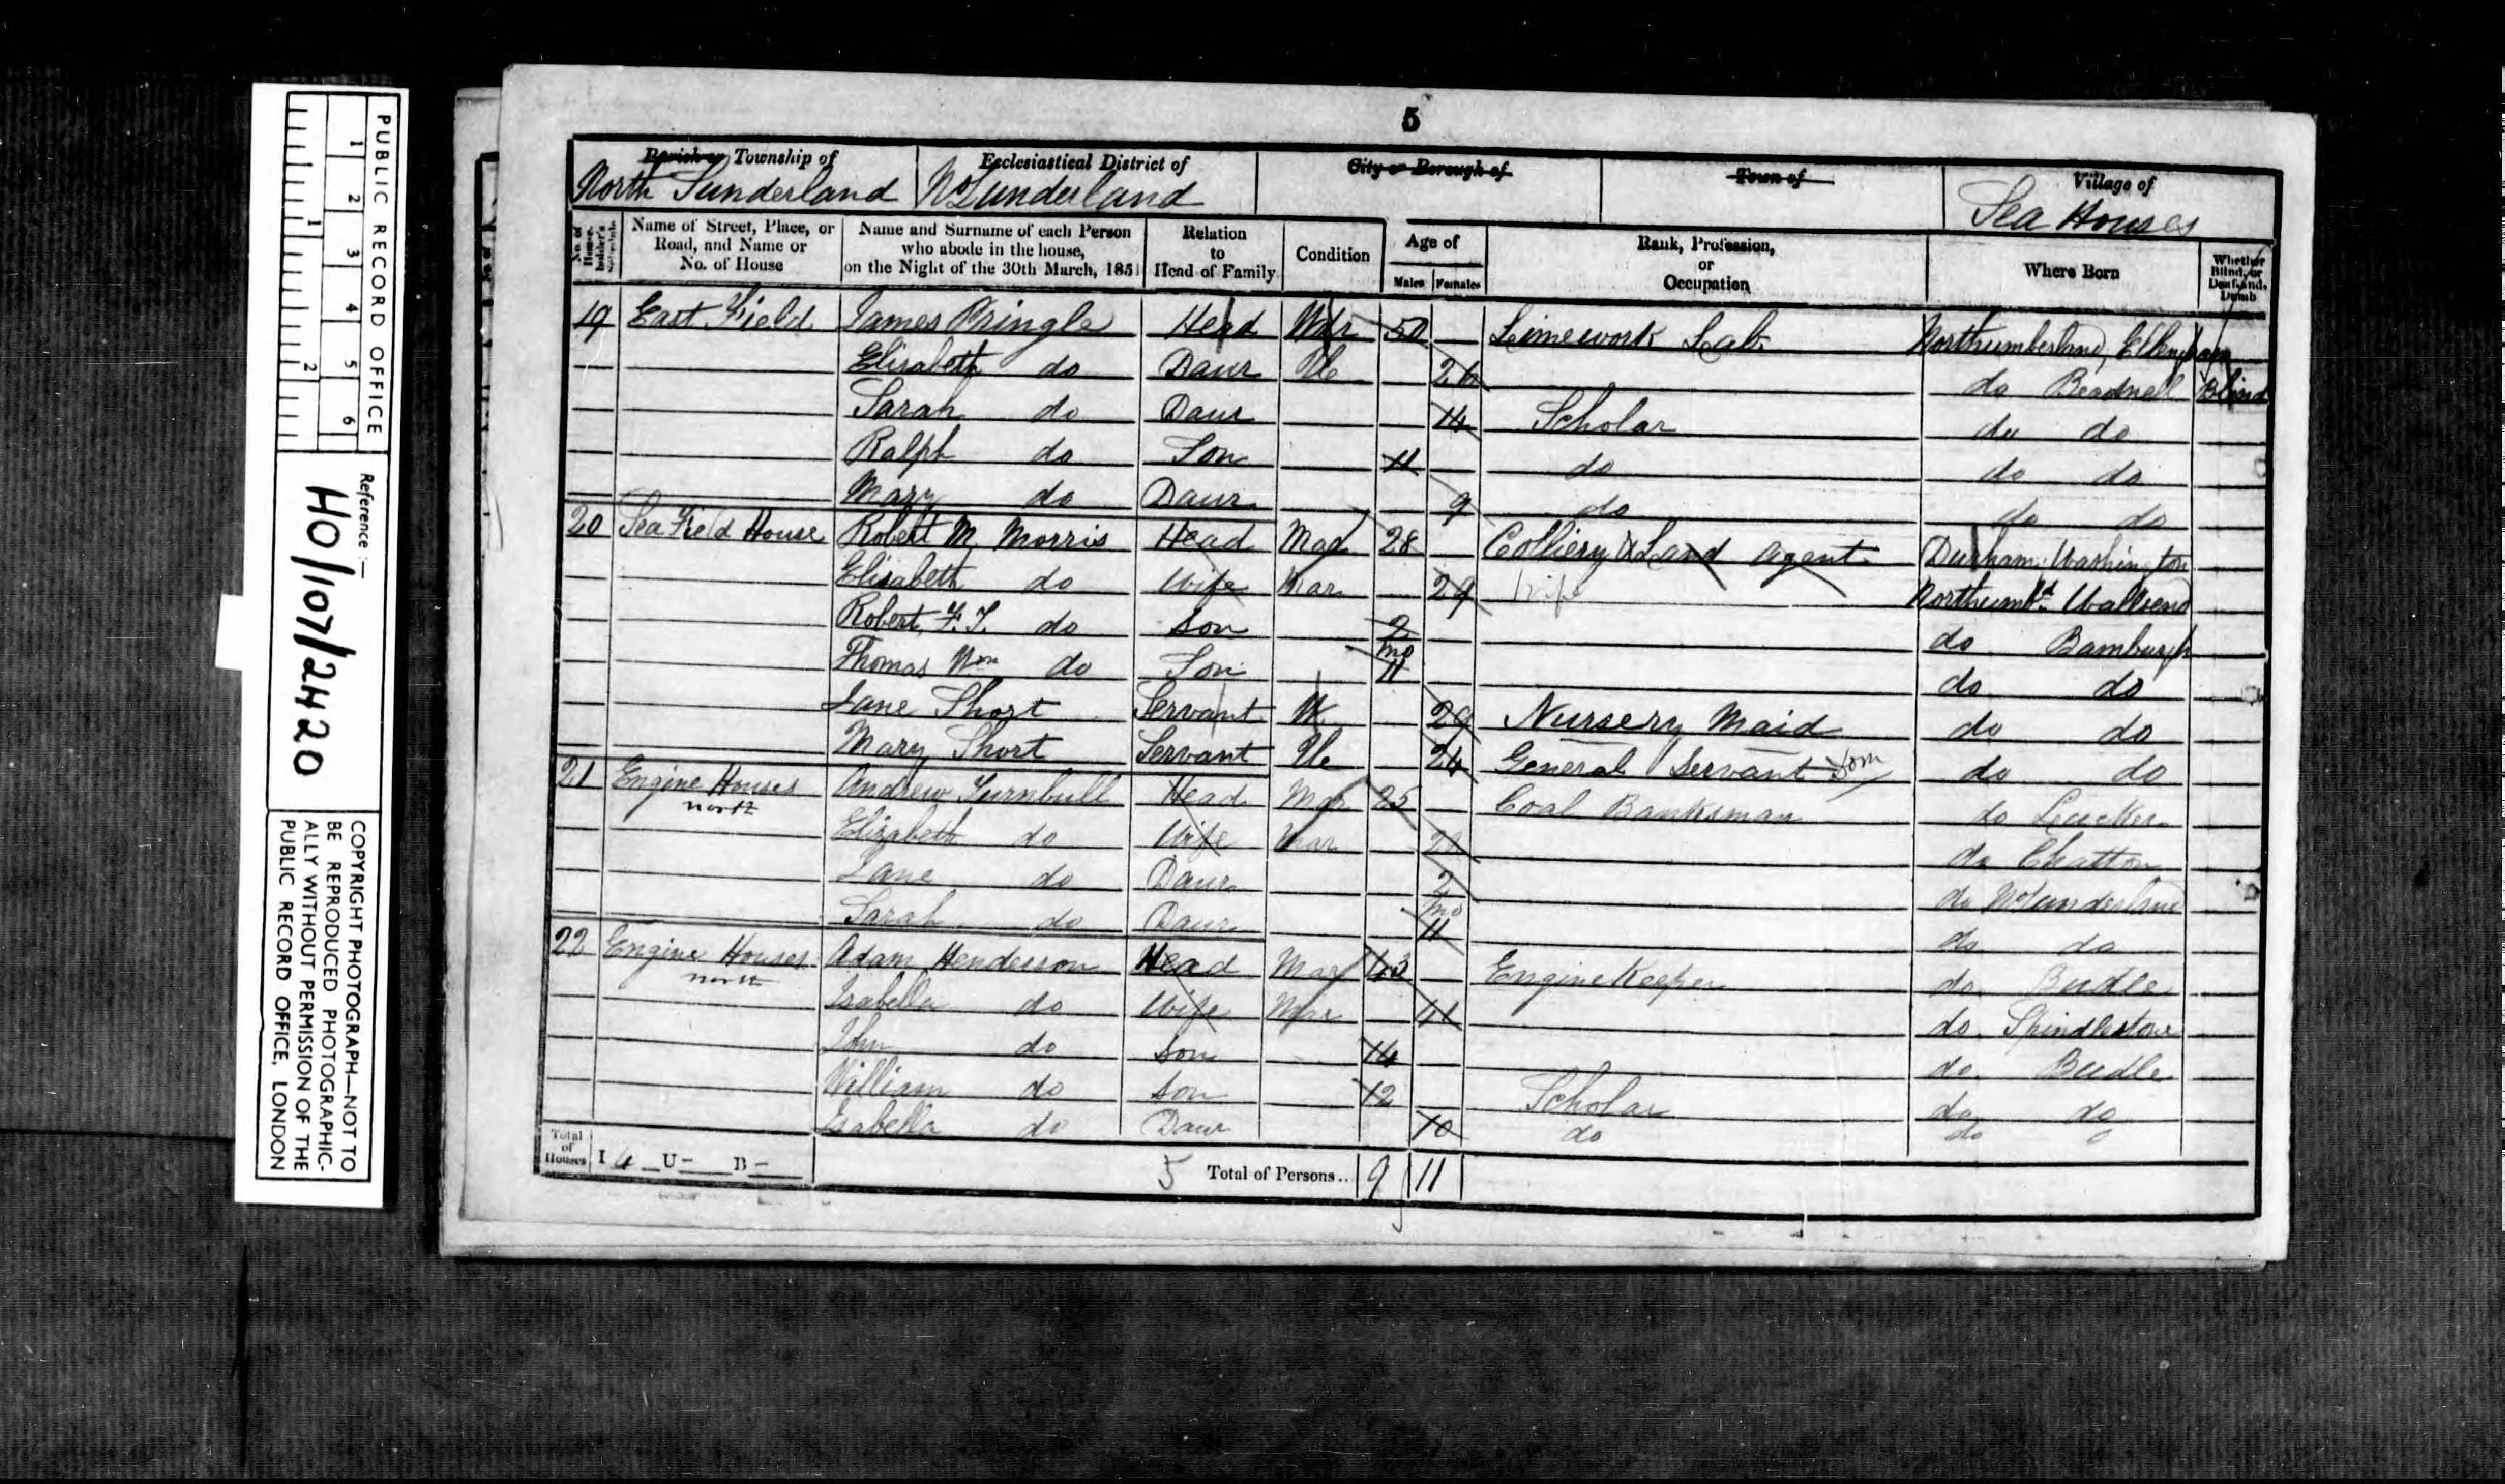 PUBLIC RECORD OFFICE
1 2 3 4 5 6
1 2
Reference :-
HO/107/2420
COPYRIGHT PHOTOGRAPH—NOT TO
BE REPRODUCED PHOTOGRAPHIC-
ALLY WITHOUT PERMISSION OF THE
PUBLIC RECORD OFFICE, LONDON
5
Parish or Township of Ecclesiastical District of City or Borough of Town of Village of
North Sunderland No Sunderland Sea Houses
No. of House-holder's Schedule Name of Street, Place, or Road, and Name or No. of House Name and Surname of each Person who abode in the house, on the Night of the 30th March, 1851 Relation to Head of Family Condition Age of Males Females Rank, Profession, or Occupation Where Born Whether Blind, or Deaf-and-Dumb
19 East Field James Pringle Head Wdr 50 Limework Lab. Northumberland, Ellingham
Elisabeth do Daur Un 26 do Beadnell Blind
Sarah do Daur 14 Scholar do do
Ralph do Son 11 do do do
Mary do Daur 9 do do do
20 Sea Field House Robert M Morris Head Mar 28 Colliery & Land Agent Durham Washington
Elisabeth do Wife Mar 29 Wife Northumbd Wallsend
Robert F. T. do Son 2 do Bamburgh
Thomas Wm do Son mo 11 do do
Jane Short Servant 29 Nursery Maid do do
Mary Short Servant Un 24 General Servant Dom do do
21 Engine Houses north Andrew Turnbull Head Mar 25 Coal Banksman do Lucker
Elizabeth do Wife Mar do Chatton
Jane do Daur 2 do No Sunderland
Sarah do Daur mo 11 do do
22 Engine Houses north Adam Henderson Head Mar 43 Engine Keeper do Budle
Isabella do Wife Mar 41 do Spindlestone
John do Son 14 do Budle
William do Son 12 Scholar do do
Isabella do Daur 10 do do do
Total of Houses I 4 U - B - 5 Total of Persons... 9 11